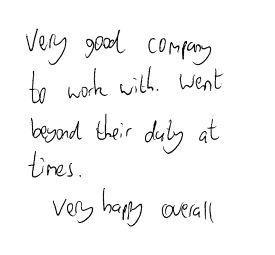 Very good company
to work with. Went
beyond their duty at
times.
Very happy overall